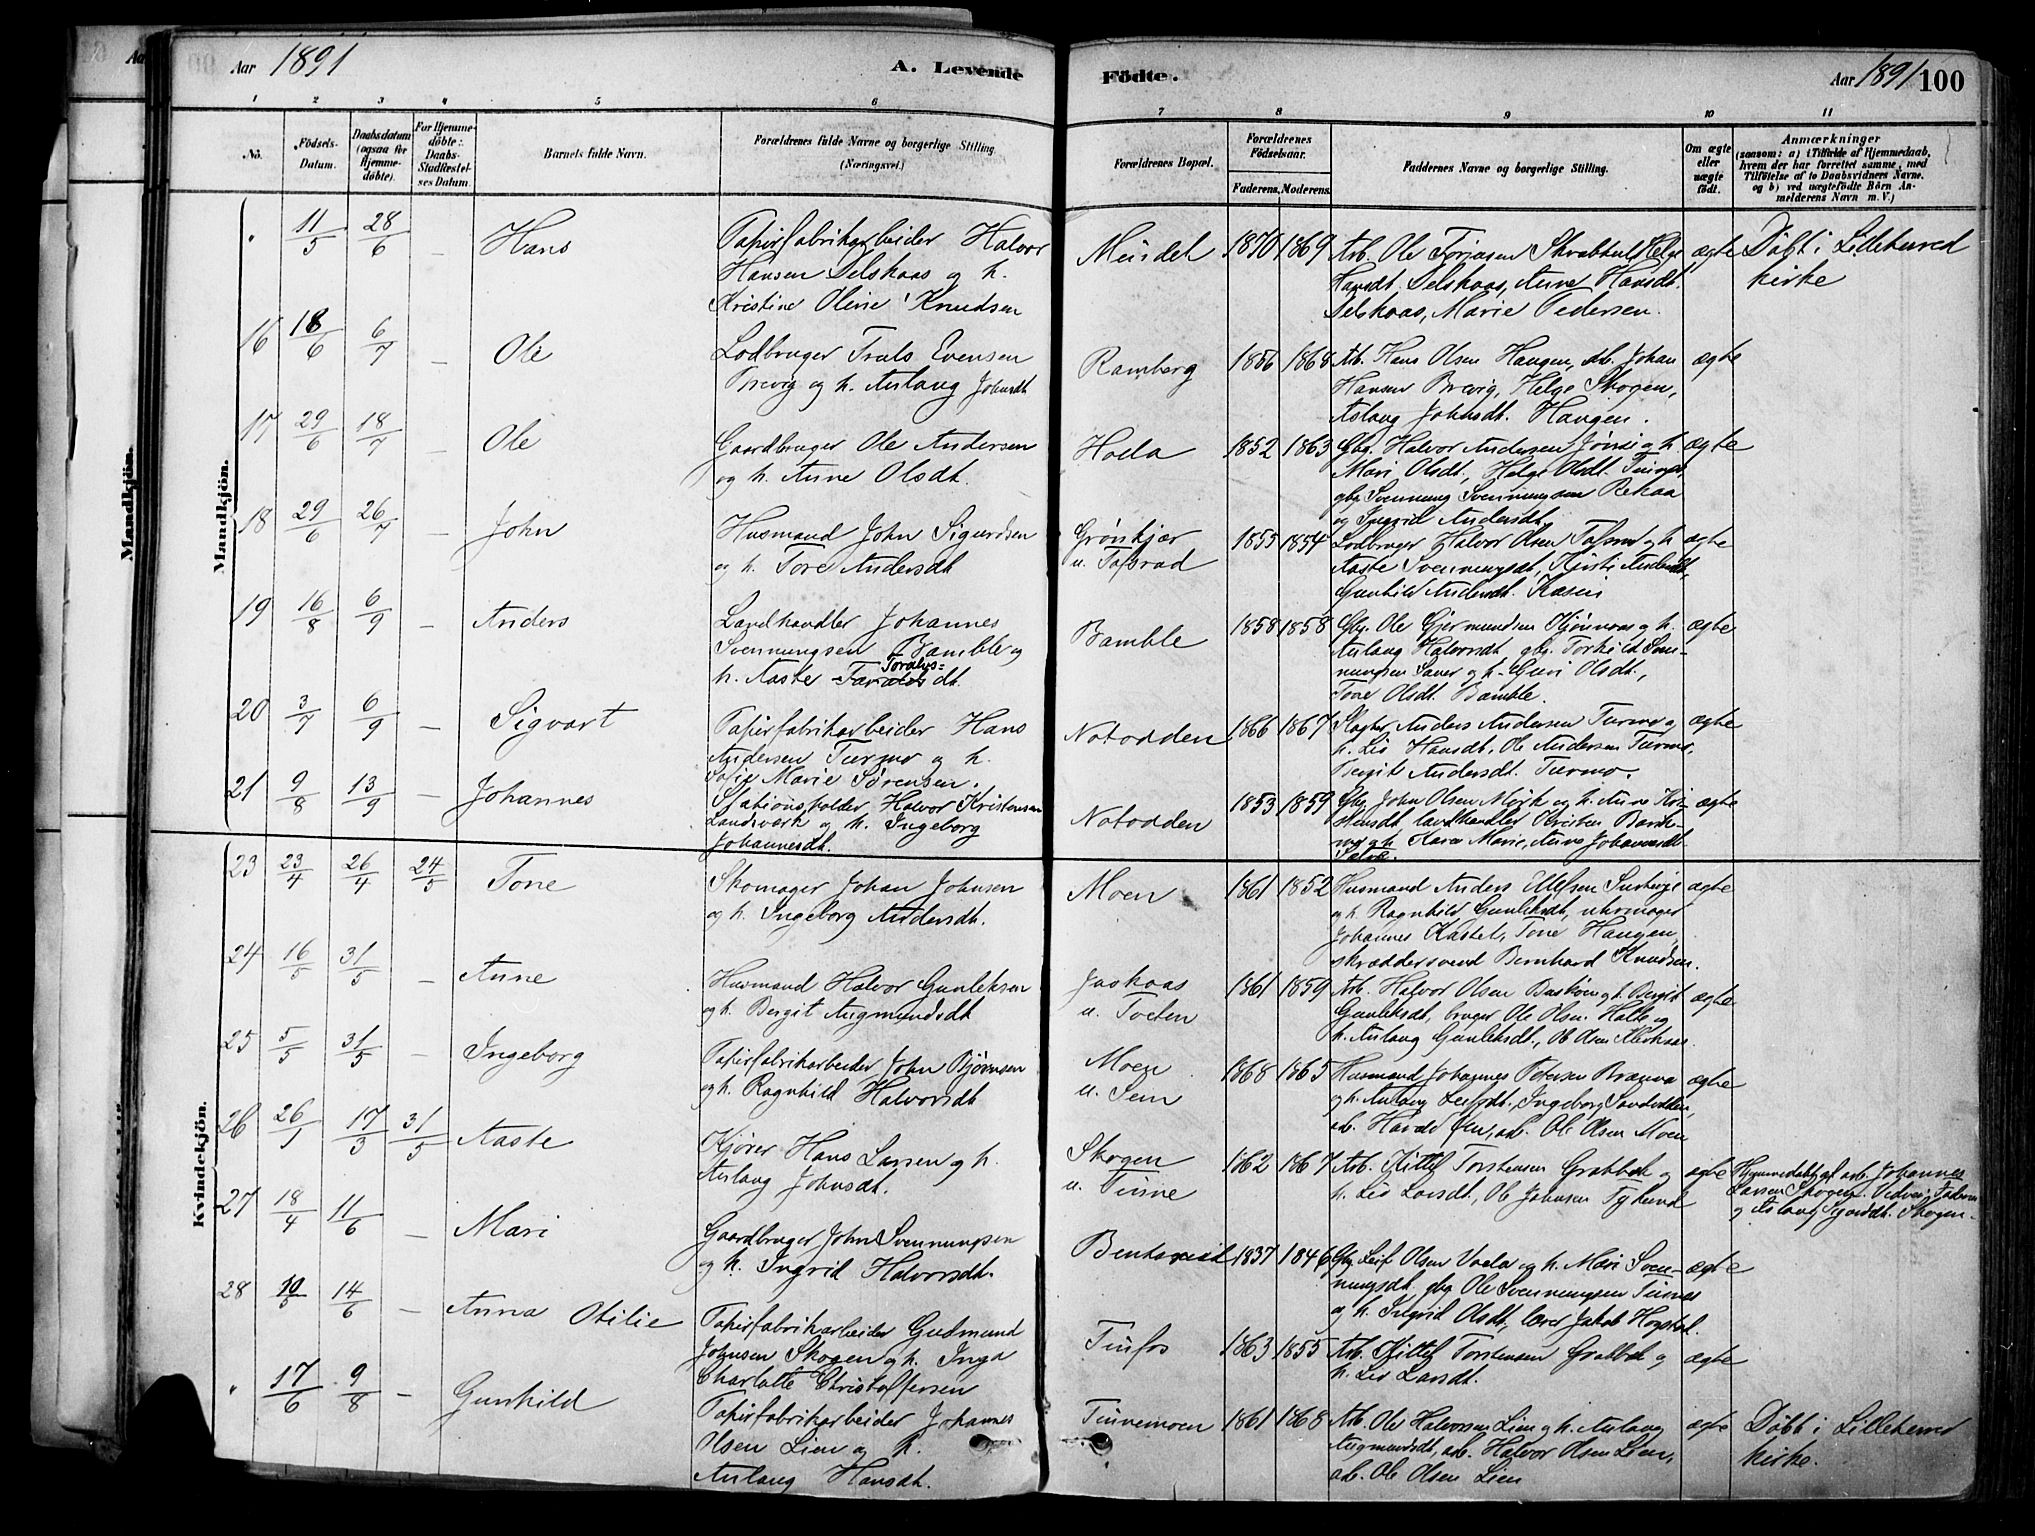 Aar 1891
A. Levende Födte.
Aar 1891 100
1 2 3 4 5 6 7 8 9 10 11
No.
Födsels-Datum.
Daabsdatum (ogsaa for Hjemmedöbte).
For Hjemmedöbte: Daabs-Stadfæstelses Datum.
Barnets fulde Navn.
Forældrenes fulde Navne og borgerlige Stilling. (Næringsvei.)
Forældrenes Bopæl.
Forældrenes Fødselsaar.
Faderens. Moderens.
Faddernes Navne og borgerlige Stilling.
Om ægte eller uægte födt.
Anmærkninger
(saasom: a) i Tilfælde af Hjemmedaab, hvem der har forrettet samme, med Tilföielse af to Daabsvidners Navne, og b) ved uægtefödte Börn Anmelderens Navn m. V.)
Mandkjön.
" 11/5 28/6 – Hans
Papirfabrikarbeider Halvor
Hansen Delskaas og h.
Kristine Oline Knudsen
Meisdel 1870 1869
Arb. Ole Torjusen Helge
Hansdt. Delskaas, Anne Hansdt.
Delskaas, Marie Pedersen.
ægte
Døbt i Lilleherred
kirke
16 18/6 6/7 – Ole
Lodbruger Trals Evensen
og h. Aslaug Johnsdt
Ramberg 1856 1868
Arb. Hans Olsen Haugen, arb. Johan
Hansen Brevig, Helge Skogen,
Aslaug Johnsdt. Haugen.
ægte
17 29/6 18/7 – Ole
Gaardbruger Ole Andersen
og h. Anne Olsdt.
Hoela 1852 1863
Gbg. Halvor Andersen og h.
Mari Olsdt., Helge Olsdt. Tinnes
gbg. Svennung Svennungsen Rekaa
og Ingrid Andersdt.
ægte
18 29/6 26/7 – John
Husmand John Sigurdsen
og h. Tore Andersdt
Grønkjær
u. Tofsrad 1855 1854
Lodbruger Halvor Olsen og h.
Aaste Svennungsdt, Kirsti Andersdt,
Gunhild Andersdt. Kasin
ægte
19 16/8 6/9 – Anders
Landhandler Johannes
Svennungsen Bamble og
h. Aaste Toralvs=dt.
Bamble 1858 1858
Gbg. Ole Gjermundsen og h.
Aslaug Halvorsdt gbg. Torkild Svennungsen
og h. Guri Olsdt,
Tone Olsdt. Bamble.
ægte
20 3/7 6/9 – Sigvart
Papirfabrikarbeider Hans
Andersen Turmo og h.
Marie Sørensen.
Notodden 1866 1867
Slagter Anders Andersen Turmo og
h. Liv Hansdt, Ole Andersen Turmo,
Bergit Andersdt. Turmo.
ægte
21 9/8 13/9 – Johannes
Stationsholder Halvor Kristensen
Landsværk og h. Ingeborg
Johannesdt.
Notodden 1853 1859
Gbg. John Olsen Mørk og h. Anne Kristensdt
landhandler
og h. Karen Marie, Anne Johannesdt
ægte
Kvindekjön.
23 23/4 26/4 24/5 Tone
Skomager Johan Johnsen
og h. Ingeborg Andersdt.
Moen 1861 1852
Husmand Anders Ellefsen
og h. Ragnhild Gunleksdt,
Johannes Kastet, Tone Haugen,
skræddersvend Bernhard Knudsen.
ægte
24 16/5 31/5 – Anne
Husmand Halvor Gunleksen
og h. Bergit Augmundsdt
Jaskaas
u. Toeten 1861 1859
Arb. Halvor Olsen og h. Bergit
Gunleksdt, bruger Ole Olsen Holte og
h. Aslaug Gunleksdt., Ole Olsen
ægte
25 5/5 31/5 – Ingeborg
Papirfabrikarbeider John Bjørnsen
og h. Ragnhild Halvorsdt
Moen
u. Sem 1868 1865
Husmand Johannes Petersen
og h. Aslaug Leifsdt. Ingeborg
arb. arb. Ole Olsen Moen
ægte
26 26/1 17/3 31/5 Aaste
Kjører Hans Larsen og h.
Aslaug Johnsdt.
Skogen
u. Tinne 1862 1867
Arb. Kittil Torstensen Grabbek og
h. Liv Larsdt, Ole Johnsen
ægte
Hjemmedøbt af arb. Johannes
Larsen Skogen. Vidner: Faderen
og Aslaug Sigursdt. Skogen.
27 18/4 11/6 – Mari
Gaardbruger John Svennungsen
og h. Ingrid Halvorsdt.
1837 1846
Gbg. Leif Olsen Vaala og h. Mari Svennungsdt
gbg Ole Svennungsen Tinnes
og h. Ingrid Olsdt, lærer Jakob
ægte
28 10/5 14/6 – Anna Otilie
Papirfabrikarbeider Gudmund
Johnsen Skogen og h. Inga
Charlotte Christoffersen
Tinfos 1863 1855
Arb. Kittil Torstensen Grabbek og
h. Liv Larsdt.
ægte
" 17/6 9/8 – Gunhild
Papirfabrikarbeider Johannes
Olsen Lien og h.
Aslaug Hansdt.
Tinnemoen 1861 1868
Arb. Ole Halvorsen Lien og h. Aslaug
Augmundsdt, arb. Halvor Olsen Lien,
arb. Ole Olsen Lien
ægte
Døbt i Lilleherred
kirke.